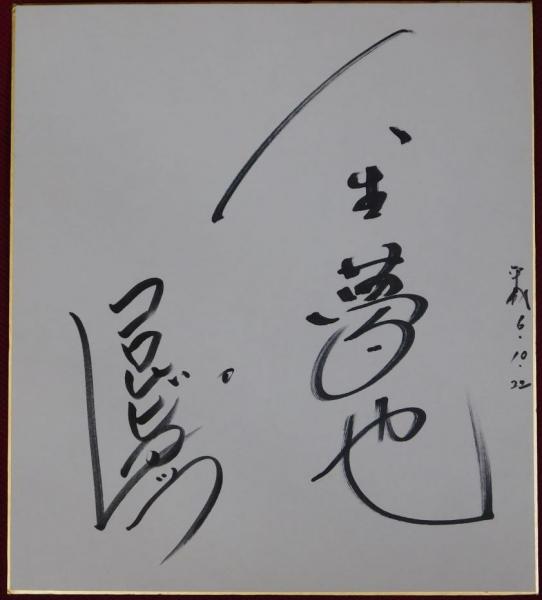 平成6.10.22
人生夢也
コロムビアトップ